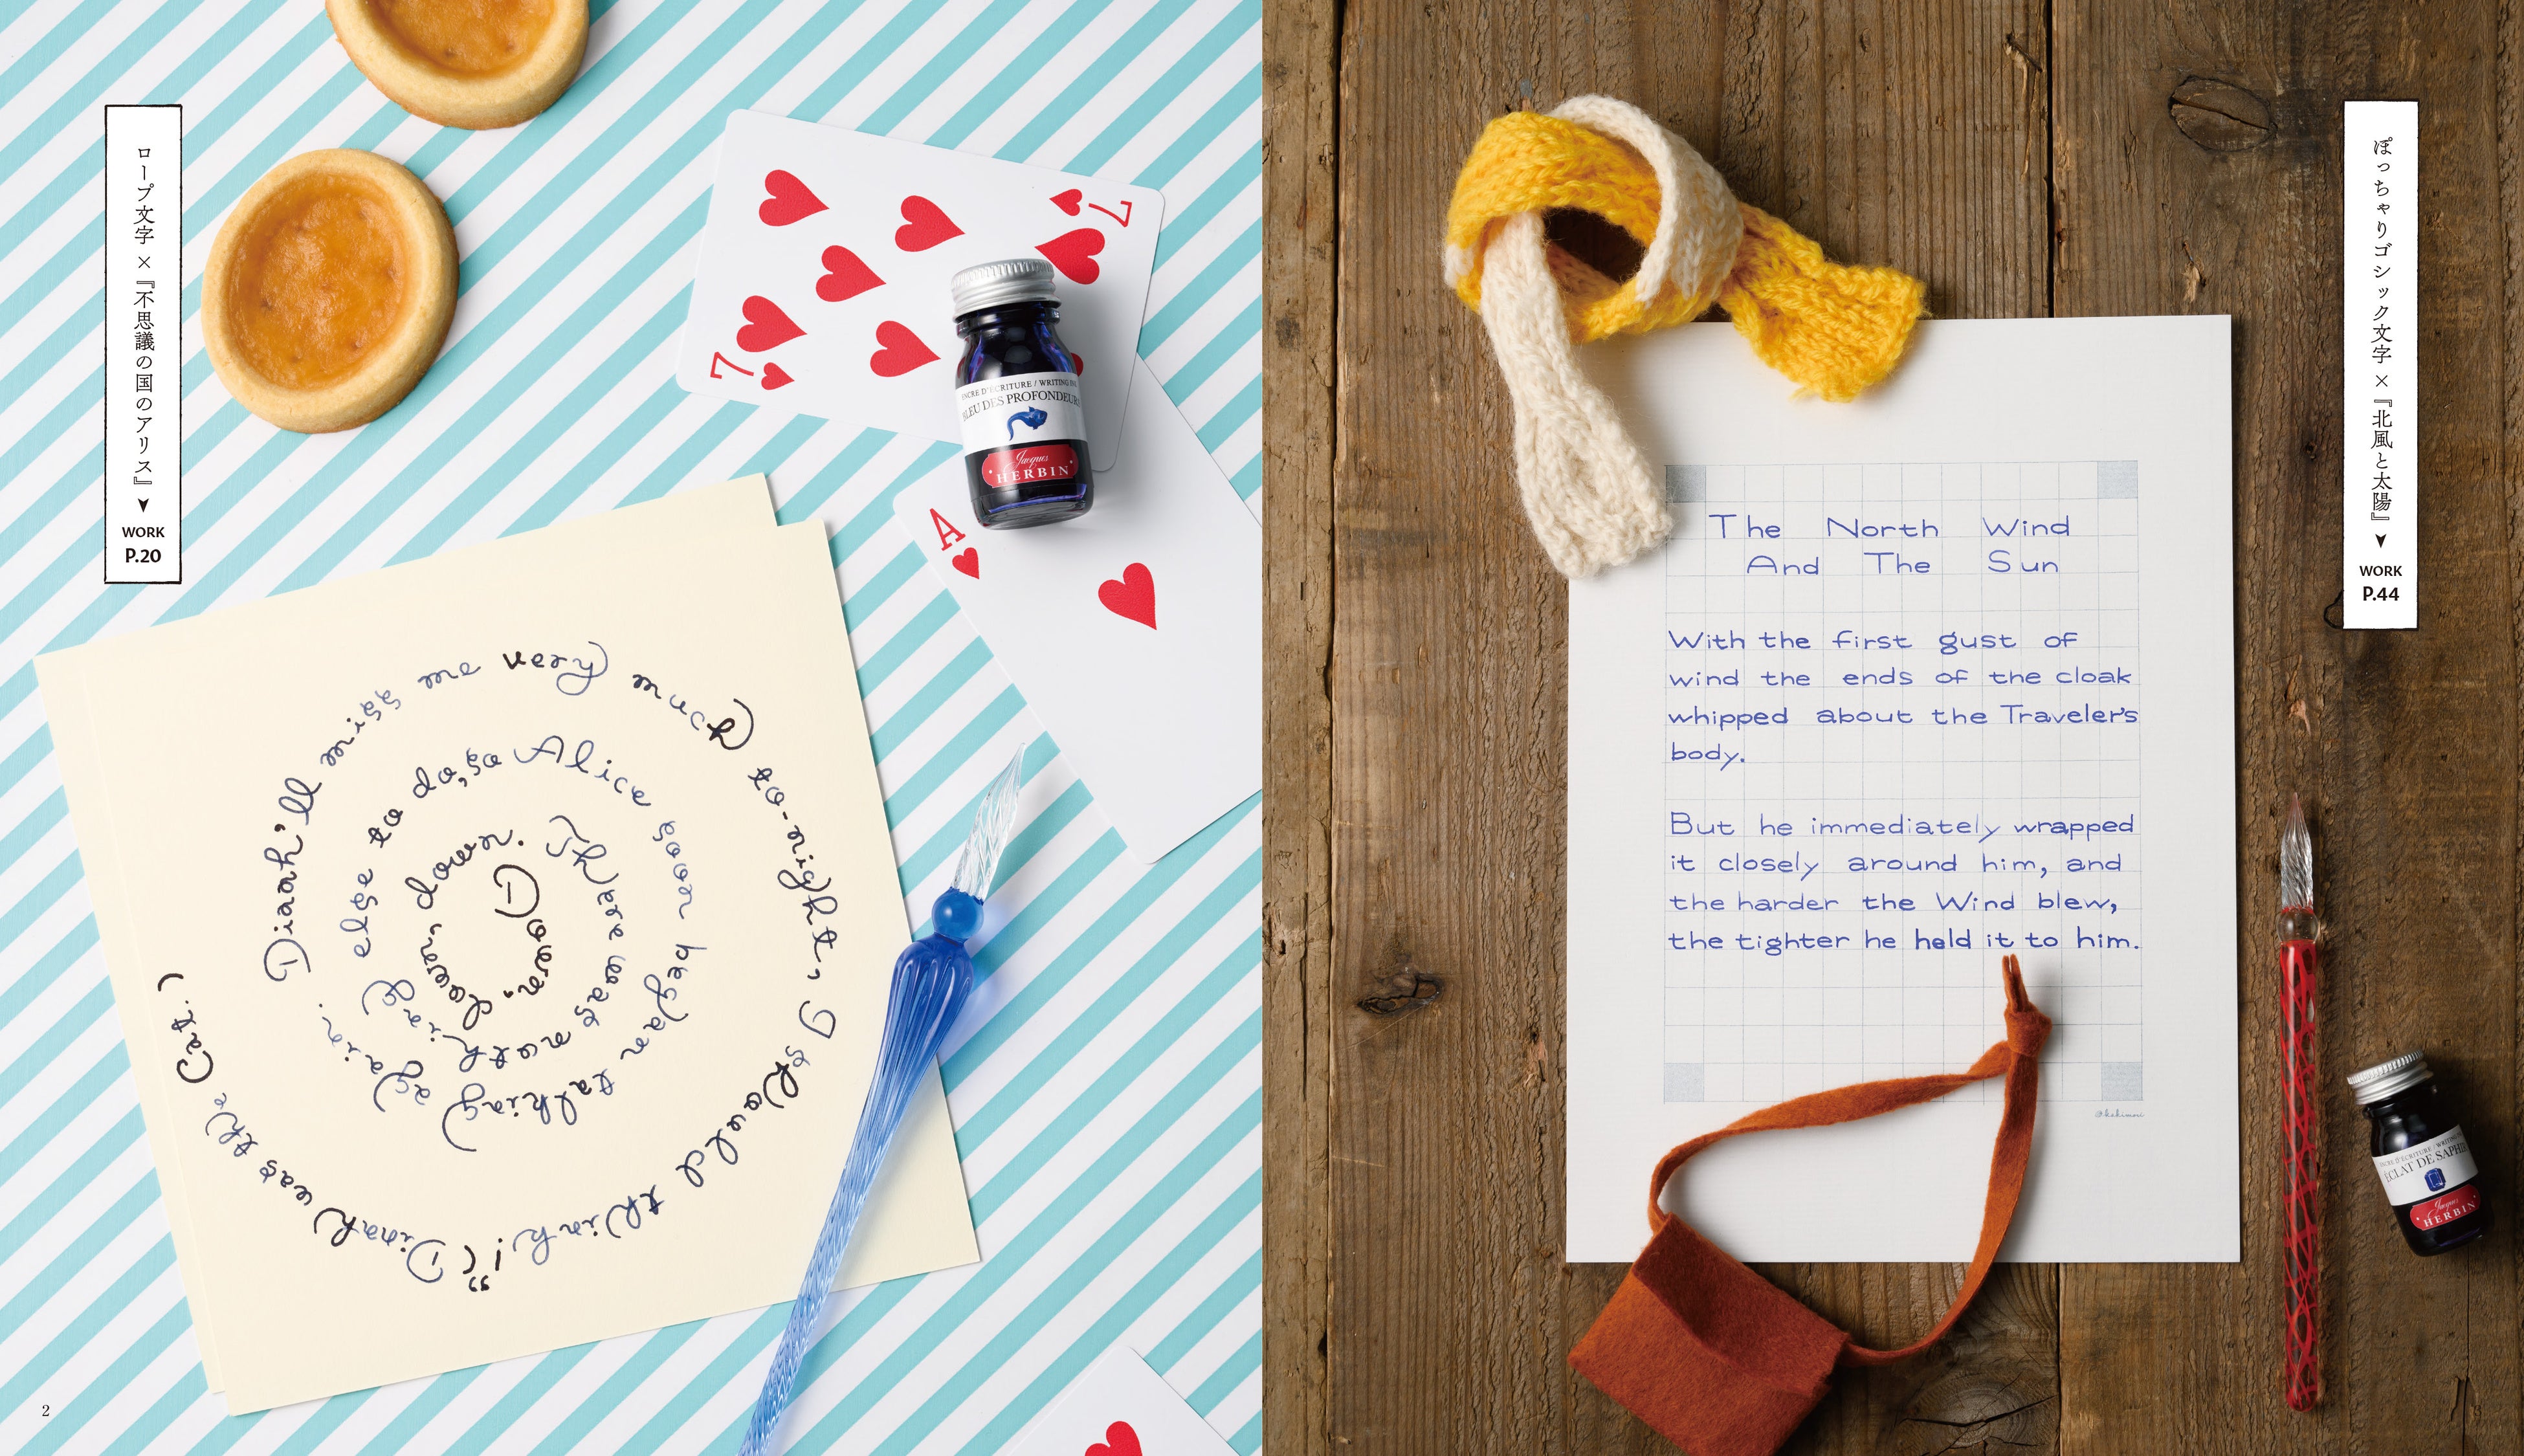 ロープ文字×『不思議の国のアリス』
WORK
P.20
7
7
ENCRE D'ÉCRITURE / WRITING INK
BLEU DES PROFONDEURS
Jacques
HERBIN
A
Down, down, down. There was nothing else to do, so Alice soon began talking again. Dinah'll miss me very much to-night, I should think!” (Dinah was the cat.)
2
ぽっちゃりゴシック文字×『北風と太陽』
WORK
P.44
The North Wind
And The Sun
With the first gust of
wind the ends of the cloak
whipped about the Traveler's
body.
But he immediately wrapped
it closely around him, and
the harder the Wind blew,
the tighter he held it to him.
ENCRE D'ÉCRITURE / WRITING
ÉCLAT DE SAPHIR
Jacques
HERBIN